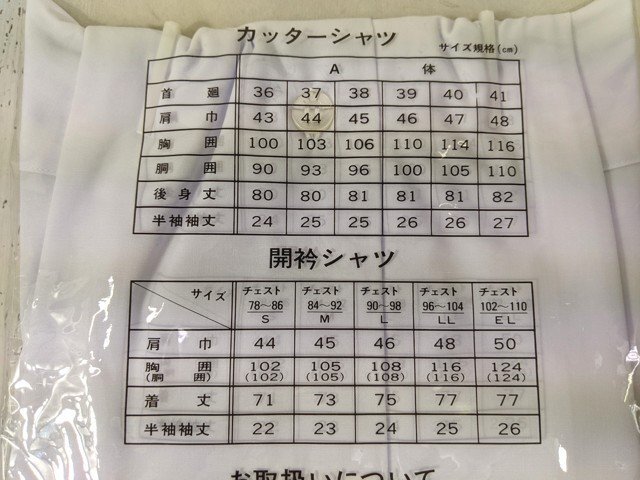 カッターシャツ
サイズ規格(cm)
A 体
首廻 36 37 38 39 40 41
肩巾 43 44 45 46 47 48
胸囲 100 103 106 110 114 116
胴囲 90 93 96 100 105 110
後身丈 80 80 81 81 81 82
半袖袖丈 24 25 25 26 26 27
開衿シャツ
サイズ チェスト チェスト チェスト チェスト チェスト
78〜86 84〜92 90〜98 96〜104 102〜110
S M L LL EL
肩巾 44 45 46 48 50
胸囲 102 105 108 116 124
(胴囲) (102) (105) (108) (116) (124)
着丈 71 73 75 77 77
半袖袖丈 22 23 24 25 26
お取扱いについて